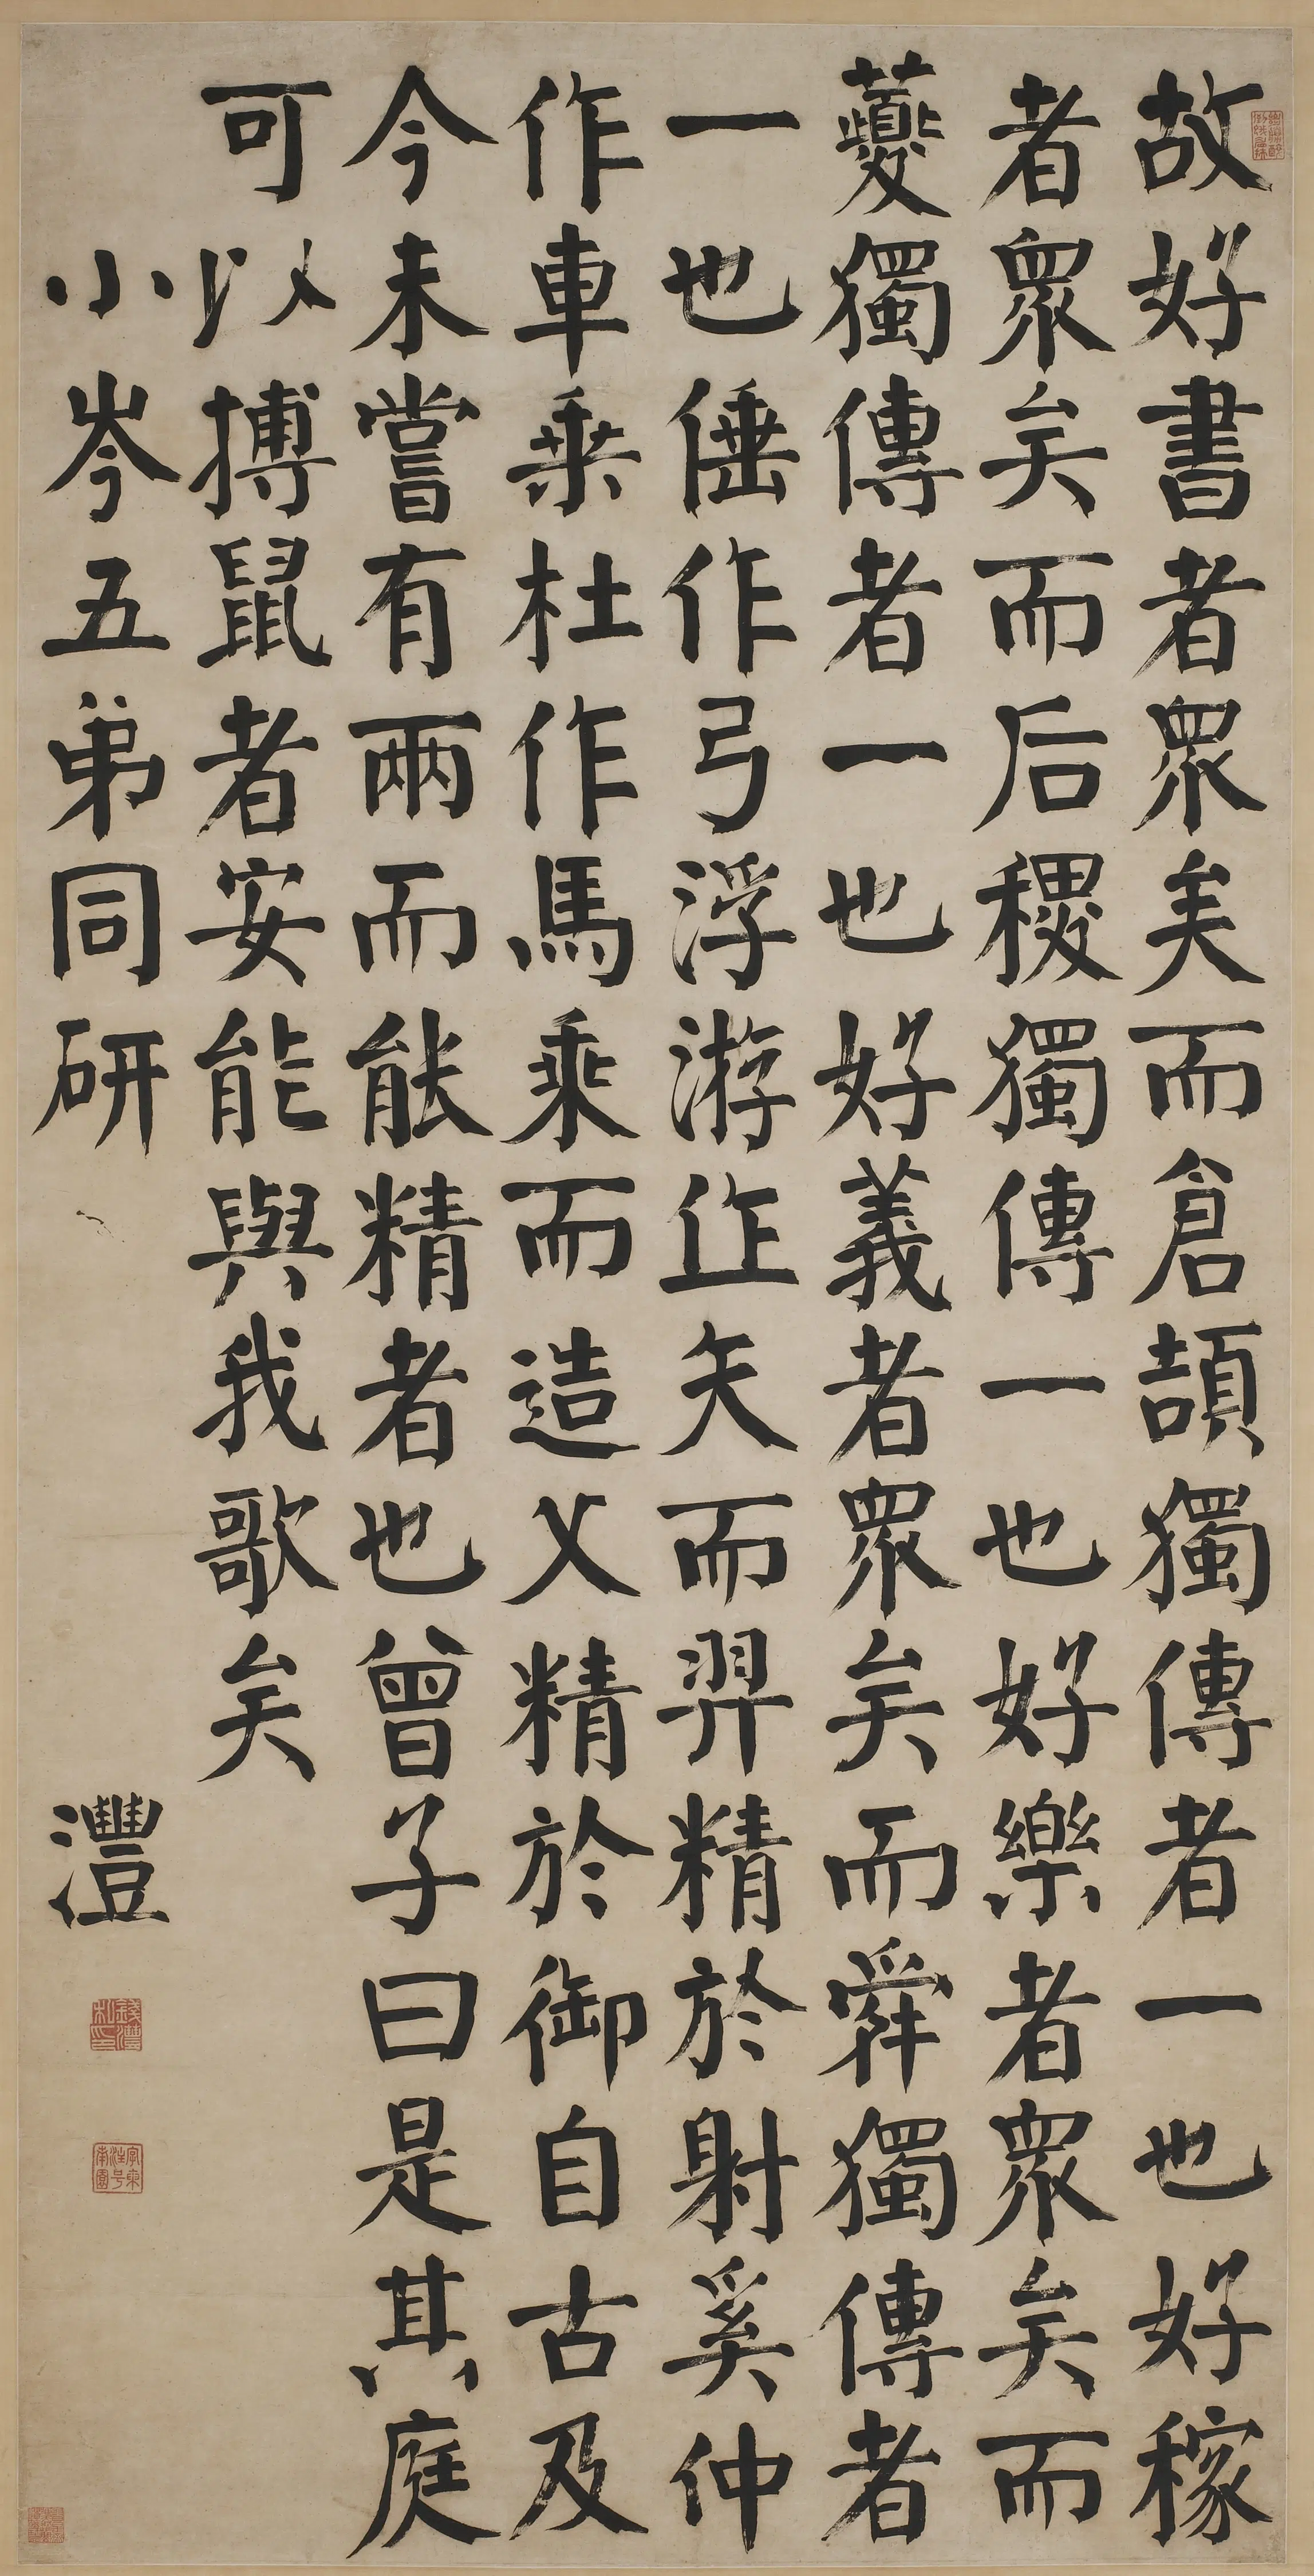 故好書者眾矣而倉頡獨傳者一也好稼
者眾矣而后稷獨傳一也好樂者眾矣而
蘷獨傳者一也好義者眾矣而舜獨傳者
一也倕作弓浮游作矢而羿精於射奚仲
作車乘杜作馬乘而造父精於御自古及
今未嘗有兩而能精者也曾子曰是其庭
可以搏鼠者安能與我歌矣
小岑五弟同研
灃
錢灃私印
字東注号南園